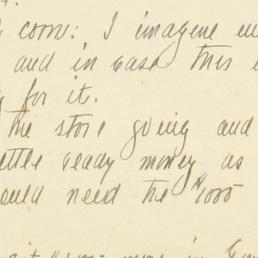 corn: I imagine
and in case this
for it.
the store going and
little ready money as
ould need the $400